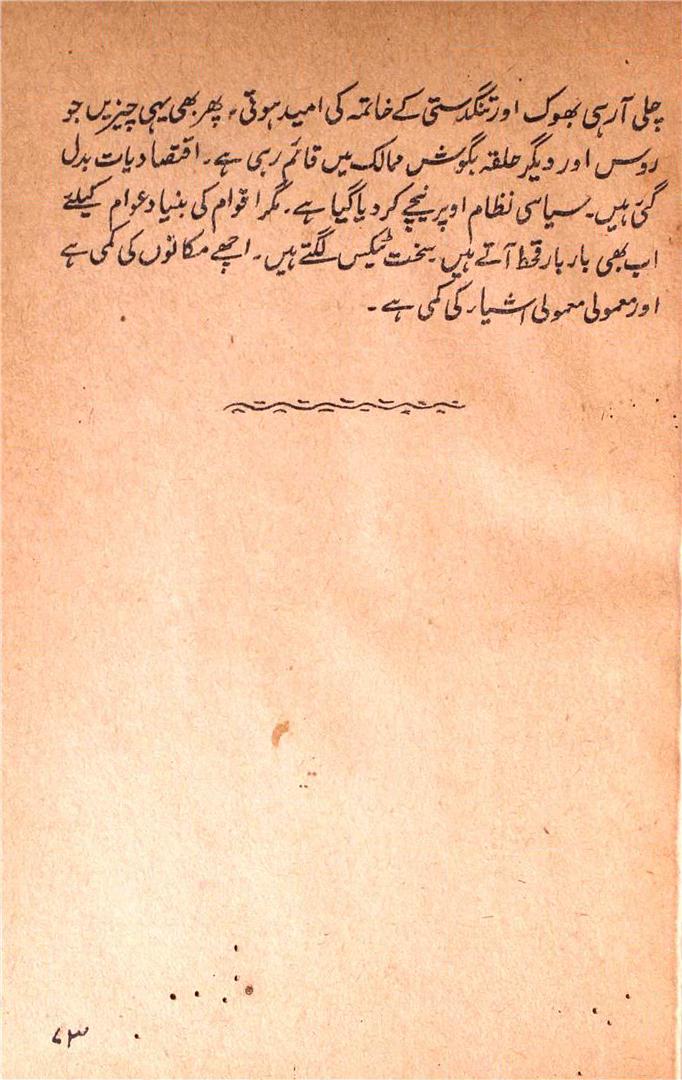 چلی آ رہی بھوک اور تنگدستی کے خاتمہ کی امید ہوتی، پھر بھی یہی چیزیں جو
روس اور دیگر حلقہ بگوش ممالک میں قائم رہی ہے۔ اقتصادیات بدل
گئی ہیں۔ سیاسی نظام اوپر نیچے کر دیا گیا ہے۔ مگر اقوام کی بنیاد عوام کیلئے
اب بھی بار بار قحط آتے ہیں سخت ٹیکس لگتے ہیں۔ اچھے مکانوں کی کمی ہے
اور معمولی معمولی اشیاء کی کمی ہے۔
۷۳